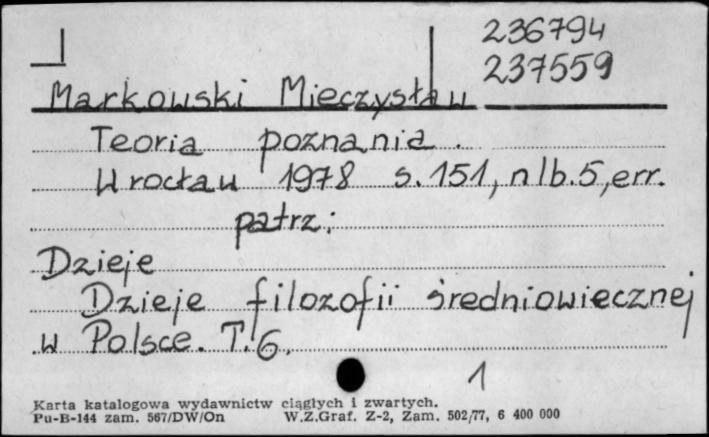 236794
237559
Markowski Mieczysław
Teoria poznania.
Wrocław 1978 s. 151, nlb. 5, err.
patrz:
Dzieje
Dzieje filozofii średniowiecznej
w Polsce. T. 6.
1
Karta katalogowa wydawnictw ciągłych i zwartych.
Pu-B-144 zam. 567/DW/On W.Z.Graf. Z-2, Zam. 502/77, 6 400 000